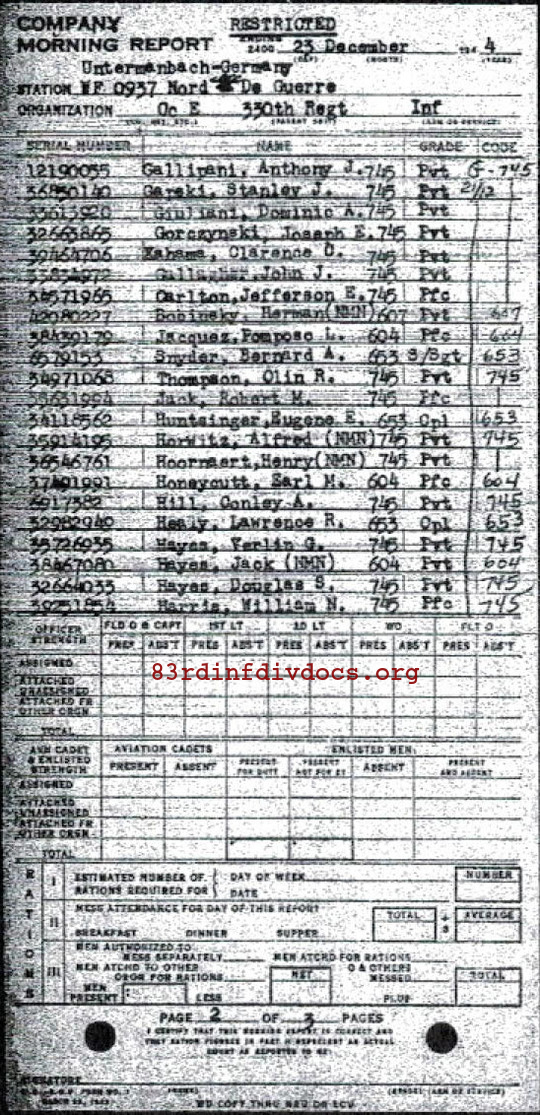 COMPANY RESTRICTED
MORNING REPORT ENDING 2400 23 December 194 4
(DAY) (MONTH) (YEAR)
Untermanbach-Germany
STATION WF 0937 Nord De Guerre
ORGANIZATION Co E 330th Regt Inf
(PARENT UNIT) (ARM OR SERVICE)
SERIAL NUMBER NAME GRADE CODE
12190055 Gallipani, Anthony J. 745 Pvt G-745
36850140 Garski, Stanley J. 745 Pvt 21/12
33613920 Giuliani, Dominic A. 745 Pvt
32663865 Gorczynski, Joseph E. 745 Pvt
39464706 Kahama, Clarence O. 745 Pvt
Gallagher, John J. 745 Pvt
34571965 Carlton, Jefferson E. 745 Pfc
42080227 Bobinsky, Herman (NMN) 607 Pvt 607
38439179 Jacquez, Pomposo L. 604 Pfc 604
6579153 Snyder, Bernard A. 653 S/Sgt 653
34971068 Thompson, Olin R. 745 Pvt 745
38631994 Jack, Robert M. 745 Pfc
34118562 Huntsinger, Eugene E. 653 Cpl 653
35914195 Horwitz, Alfred (NMN) 745 Pvt 745
36546761 Hoornaert, Henry (NMN) 745 Pvt
37491991 Honeycutt, Earl M. 604 Pfc 604
6917382 Hill, Conley A. 745 Pvt 745
32982940 Healy, Lawrence R. 653 Cpl 653
35726935 Hayes, Verlin G. 745 Pvt 745
38467080 Hayes, Jack (NMN) 604 Pvt 604
32664033 Hayes, Douglas S. 745 Pvt 745
39251854 Harris, William N. 745 Pfc 745
OFFICER STRENGTH FLD O & CAPT 1ST LT 2D LT WO FLT O
PRES ABS'T PRES ABS'T PRES ABS'T PRES ABS'T PRES ABS'T
ASSIGNED
83rdinfdivdocs.org
ATTACHED UNASSIGNED
ATTACHED FR OTHER ORGN
TOTAL
AVN CADET & ENLISTED STRENGTH AVIATION CADETS ENLISTED MEN
PRESENT ABSENT PRESENT FOR DUTY PRESENT NOT FOR DY ABSENT PRESENT AND ABSENT
ASSIGNED
ATTACHED UNASSIGNED
ATTACHED FR OTHER ORGN
TOTAL
RATIONS
I ESTIMATED NUMBER OF RATIONS REQUIRED FOR DAY OF WEEK DATE NUMBER
II MESS ATTENDANCE FOR DAY OF THIS REPORT TOTAL ÷ 3 AVERAGE
BREAKFAST DINNER SUPPER
III MEN AUTHORIZED TO MESS SEPARATELY MEN ATCHD FOR RATIONS
MEN ATCHD TO OTHER ORGN FOR RATIONS NET O & OTHERS MESSED TOTAL
MEN PRESENT LESS PLUS
PAGE 2 OF 3 PAGES
I CERTIFY THAT THIS MORNING REPORT IS CORRECT AND
THAT RATION FIGURES IN PART III REPRESENT AN ACTUAL
COUNT AS REPORTED TO ME
SIGNATURE